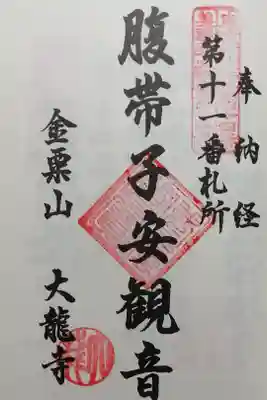 奉納経
第十一番札所
腹帯子安観音
金栗山 大龍寺